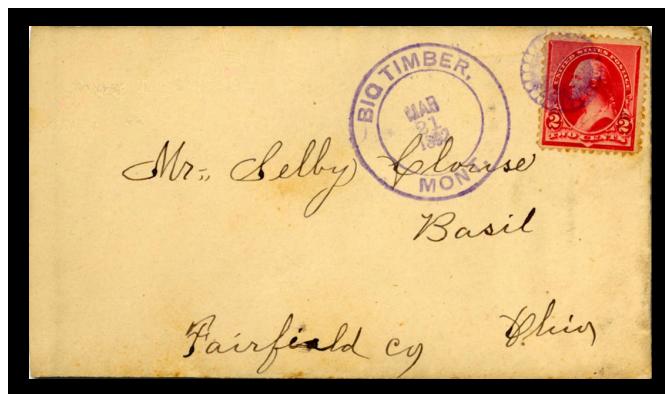 BIG TIMBER,
MAR
21
1892
MONT.
UNITED STATES POSTAGE
2 2
TWO CENTS
Mr. Selby Clouse
Basil
Fairfield Co
Ohio